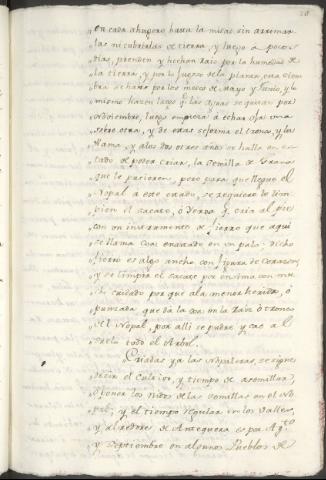 en cada ahugero, hasta la mitad sin arrimar-
las ni cubrirlas de tierra, y luego à pocos
dias, prenden y hechan raiz por la humedad de
la tierra, y por la fuerza de la planta, esta siem-
bra se hace por los meses de Mayo y Junio, y lo
mismo hazen luego q. las Aguas se quitan por
Noviembre, luego empieza à echar oja una
sobre otra, y de estas se forma el tronco, y las
Rama, y a los dos o tres años se halla en es-
tado de poder criar, la semilla de Grana
que le pusieren, pero para que llegue el
Nopal a este estado, se requiere le lim-
pien el sacate, ò Yerva q. cria al pie
con un instrumento de fierro que aqui
se llama Coa, enastado en un palo, dicho
fierro es algo ancho con figura de Corazon
y se limpia el sacate por encima con mu-
cho cuidado por que a la menor herida, ò
punzada que dà la coa en la raiz ò tronco
del Nopal, por alli se pudre, y cae al
suelo todo el Arbol.
Criadas ya las Nopaleras, se sigue
decir el cultivo, y tiempo de asemillar,
ò poner los nidos de las semillas en el No-
pal, y el tiempo regular en los Valles,
y alrededores de Antequera es por Ag.to
y Septiembre en algunos Pueblos de